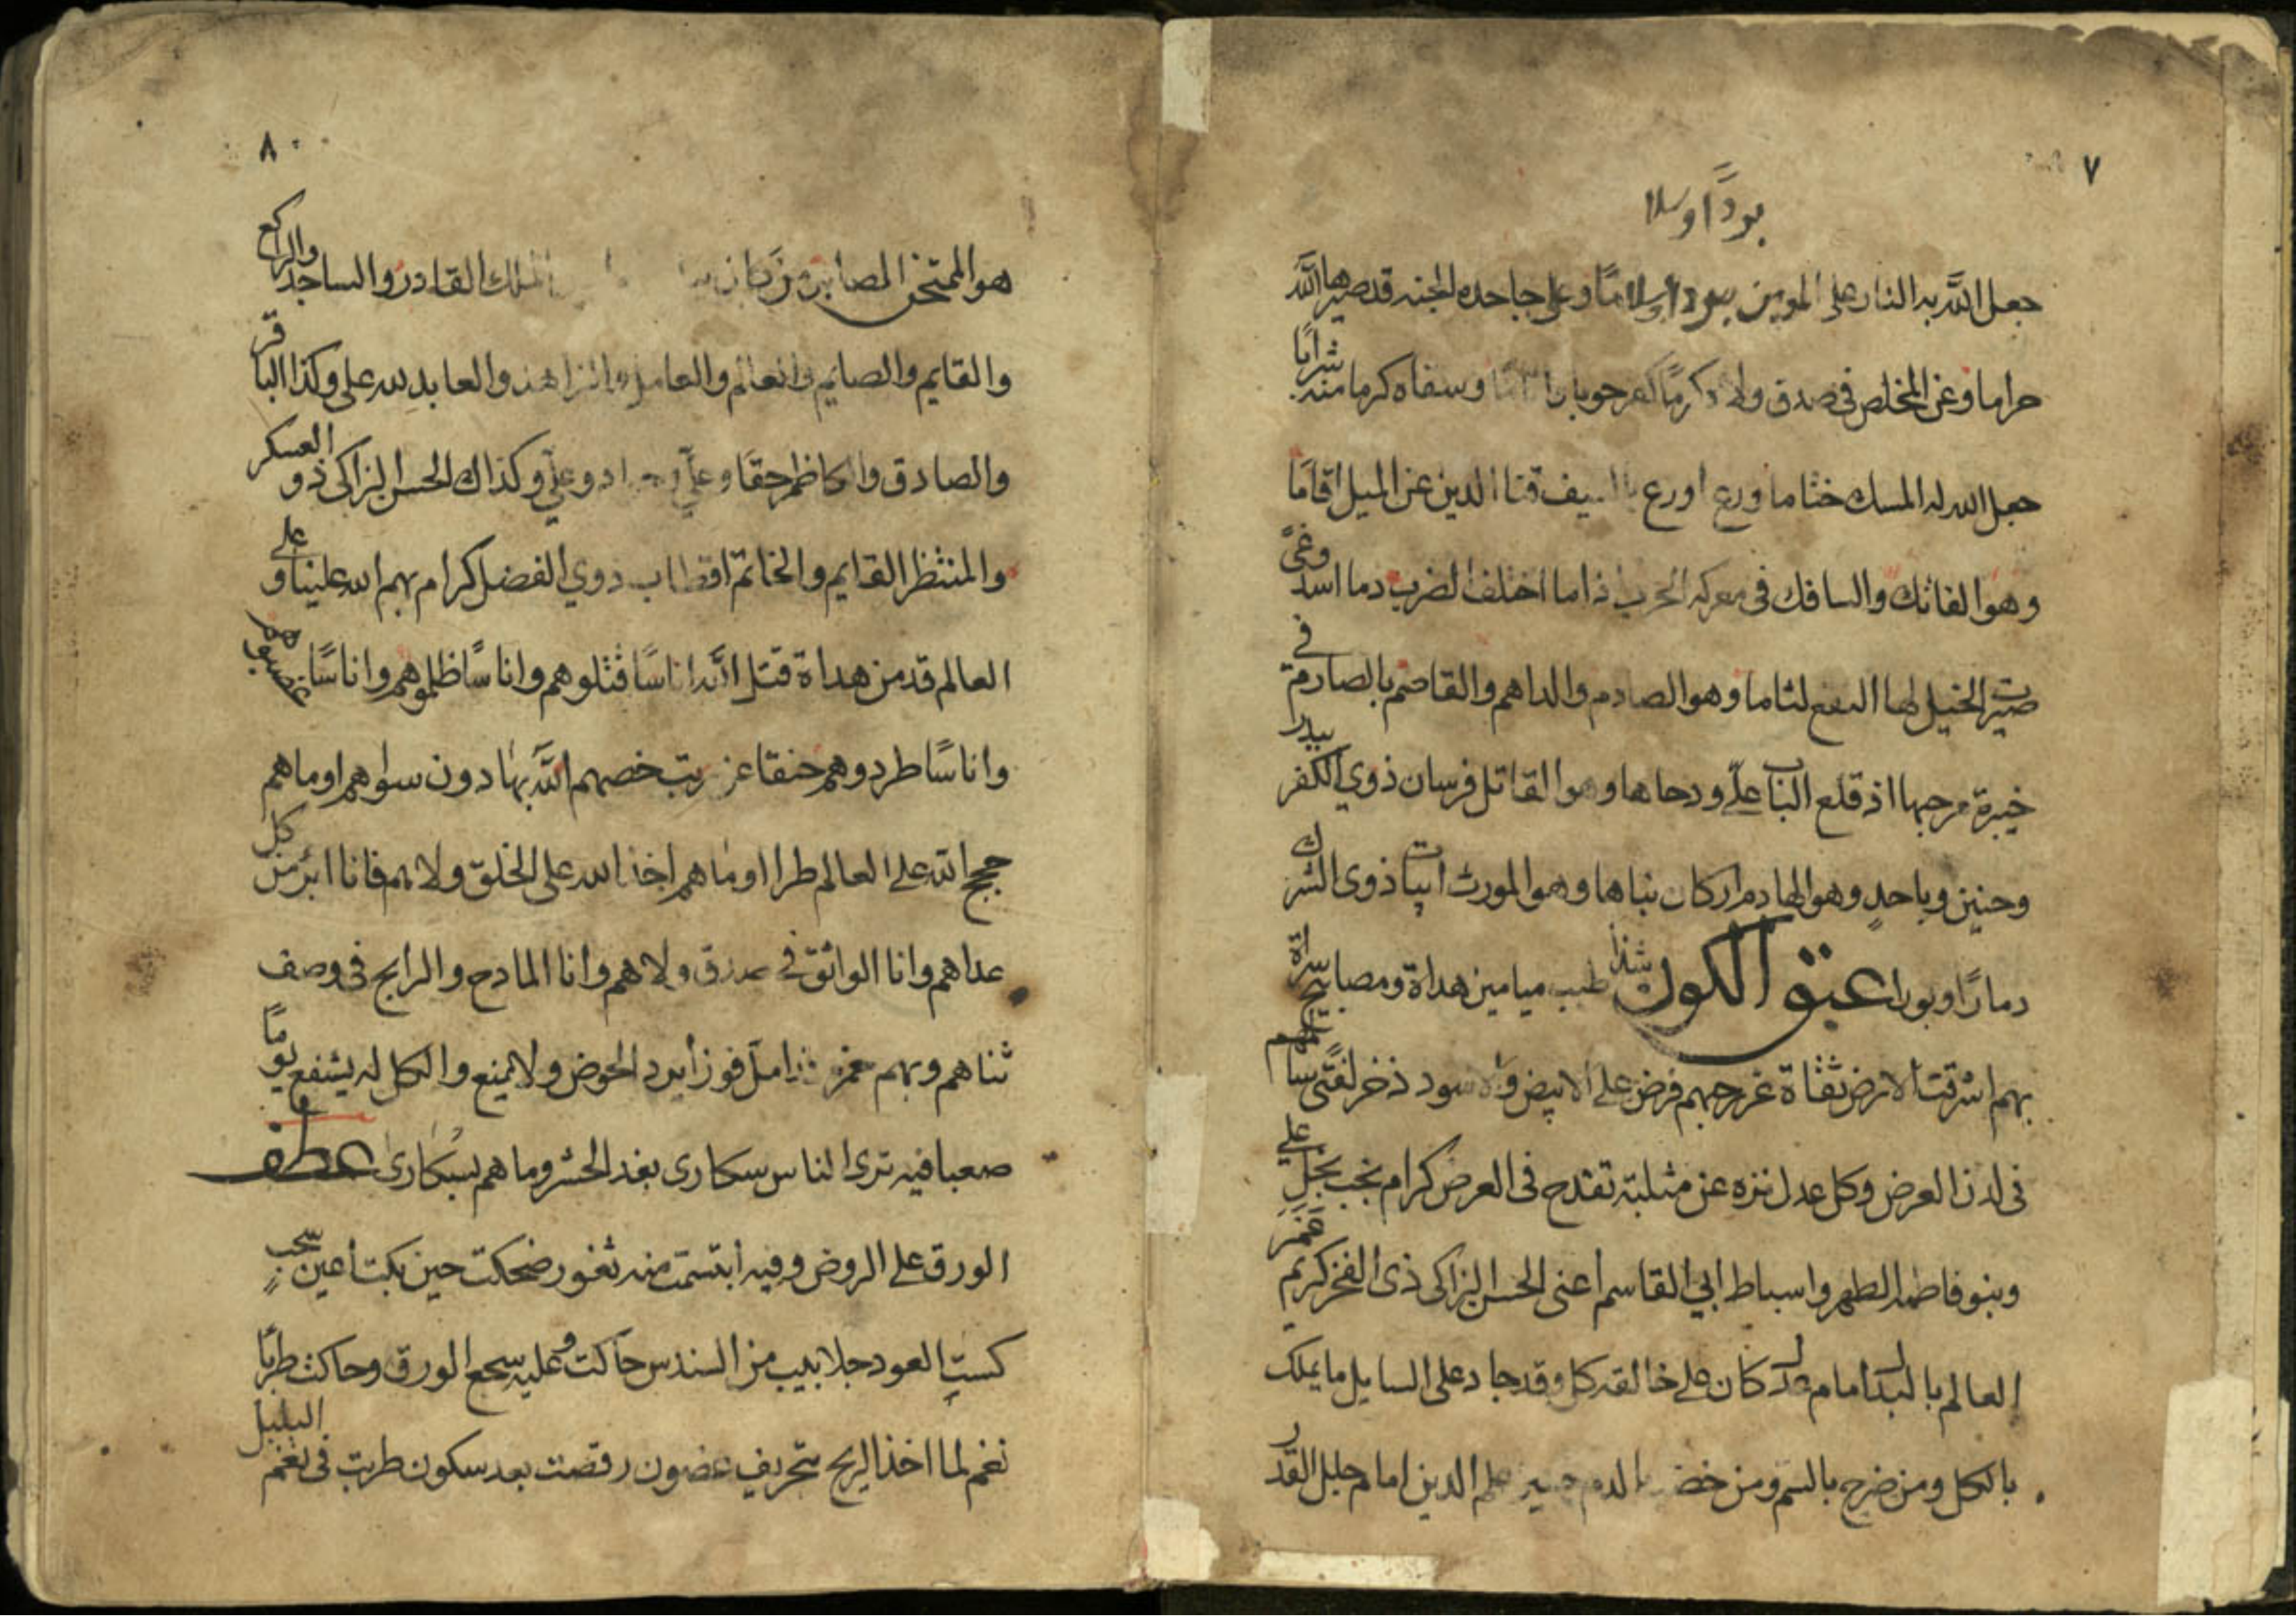 ٧
بردًا وسلا
جعل الله به النار على المومن بردا وسلامًا وعلى جاحده الجنه قد صيرها الله
حراما وعن المخلص في صدق ولاه كرمًا وسقاه كرما منه شرابًا
جعل الله له المسك ختاما ورع اورع بالسيف قنا الدين عن الميل اقامًا
وهو الفاتك والسافك في معركه الحرب اذا ما اختلف الضرب دما اسد وغىً
صيرت الخيل لها النقع لثاما وهو الصادم والداهم والقاصم بالصارم في
خيبرة مرحبها اذ قلع الباب علىّ ودحاها وهو القاتل فرسان ذوي الكفر ببدر
وحنين وباحدٍ وهو الهادم اركان بناها وهو المورث ابيات ذوى الشرك
دمارًا وبورا عبق الكون شذا طيب ميامين هداة ومصابيح سراة
بهم اشرقت الارض ثقاة غر حبهم فرض على الابيض والاسود ذخر لفتًى سالم
في لدن العرض وكل عدل نزه عن مثلبة تقدح في العرض كرام نجب نجل علي
وبنو فاطمة الطهر واسباط ابي القاسم اعنى الحسن الزاكى ذى الفخر كريم
العالم بالله امام كان على خالقه كل وقد جاد على السايل ما يملك
بالكل ومن ضرج بالسم ومن خضب بالدم حسين علم الدين امام جلل القدر
٨
هو الممتحن المصابر من كان الملك القادر والساجد والراكع
والقايم والصايم والعالم والعامل والزاهد والعابد لله على وكذا الباقر
والصادق والكاظم حقًا وعلىّ وجواد وعلىّ وكذاك الحسن الزاكى ذو العسكر
والمنتظر القايم والخاتم اقطاب ذوي الفضل كرام بهم الله علينا وعلى
العالم قد من هداة قتل الله اناسًا قتلوهم واناسًا ظلموهم واناسًا غصبوهم
واناسًا طردوهم حنقا عن رتب خصهم الله بها دون سواهم او ما هم
حجج الله على العالم طرا او ما هم اخذ الله على الخلق ولاهم فانا ابرء من كل
عداهم وانا الواثق في صدق ولاهم وانا المادح والرابح في وصف
ثناهم وبهم امل فوزا يرد الحوض ولا يمنع والكل له يشفع يومًا
صعبا فيه ترى الناس سكارى بغد الحشر وما هم بسكارى عطف
الورق على الروض وفيه ابتسمت منه ثغور ضحكت حين بكت اعين سحبٍ
كست العود جلابيب من السندس حاكت وعليه سجع الورق وحاكت طربًا
نغم لما اخذ الريح بتحريف غصون رقصت بعد سكون طربت في نغم البلبل